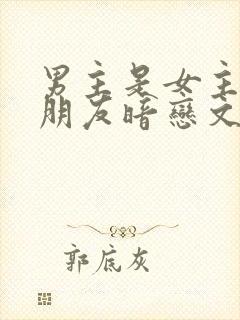 男主是女主
朋友暗戀文
郭底灰